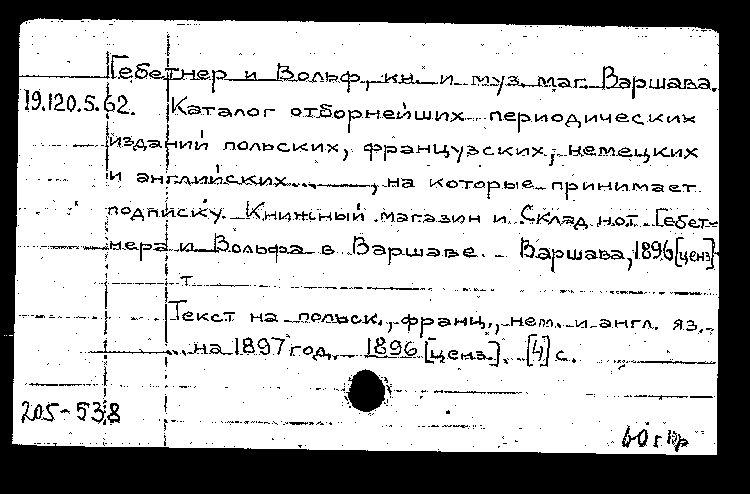 Гебетнер и Вольф, кн. и муз. маг. Варшава.
19.120.5.62. Каталог отборнейших периодических
изданий польских, французских, немецких
и английских..., на которые принимает
подписку Книжный магазин и Склад нот Гебет-
нера и Вольфа в Варшаве. - Варшава, 1896 [ценз]
т
Текст на польск., франц., нем. и англ. яз.-
... на 1897 год. 1896 [ценз.]. [4] с.
205-538
60 г.